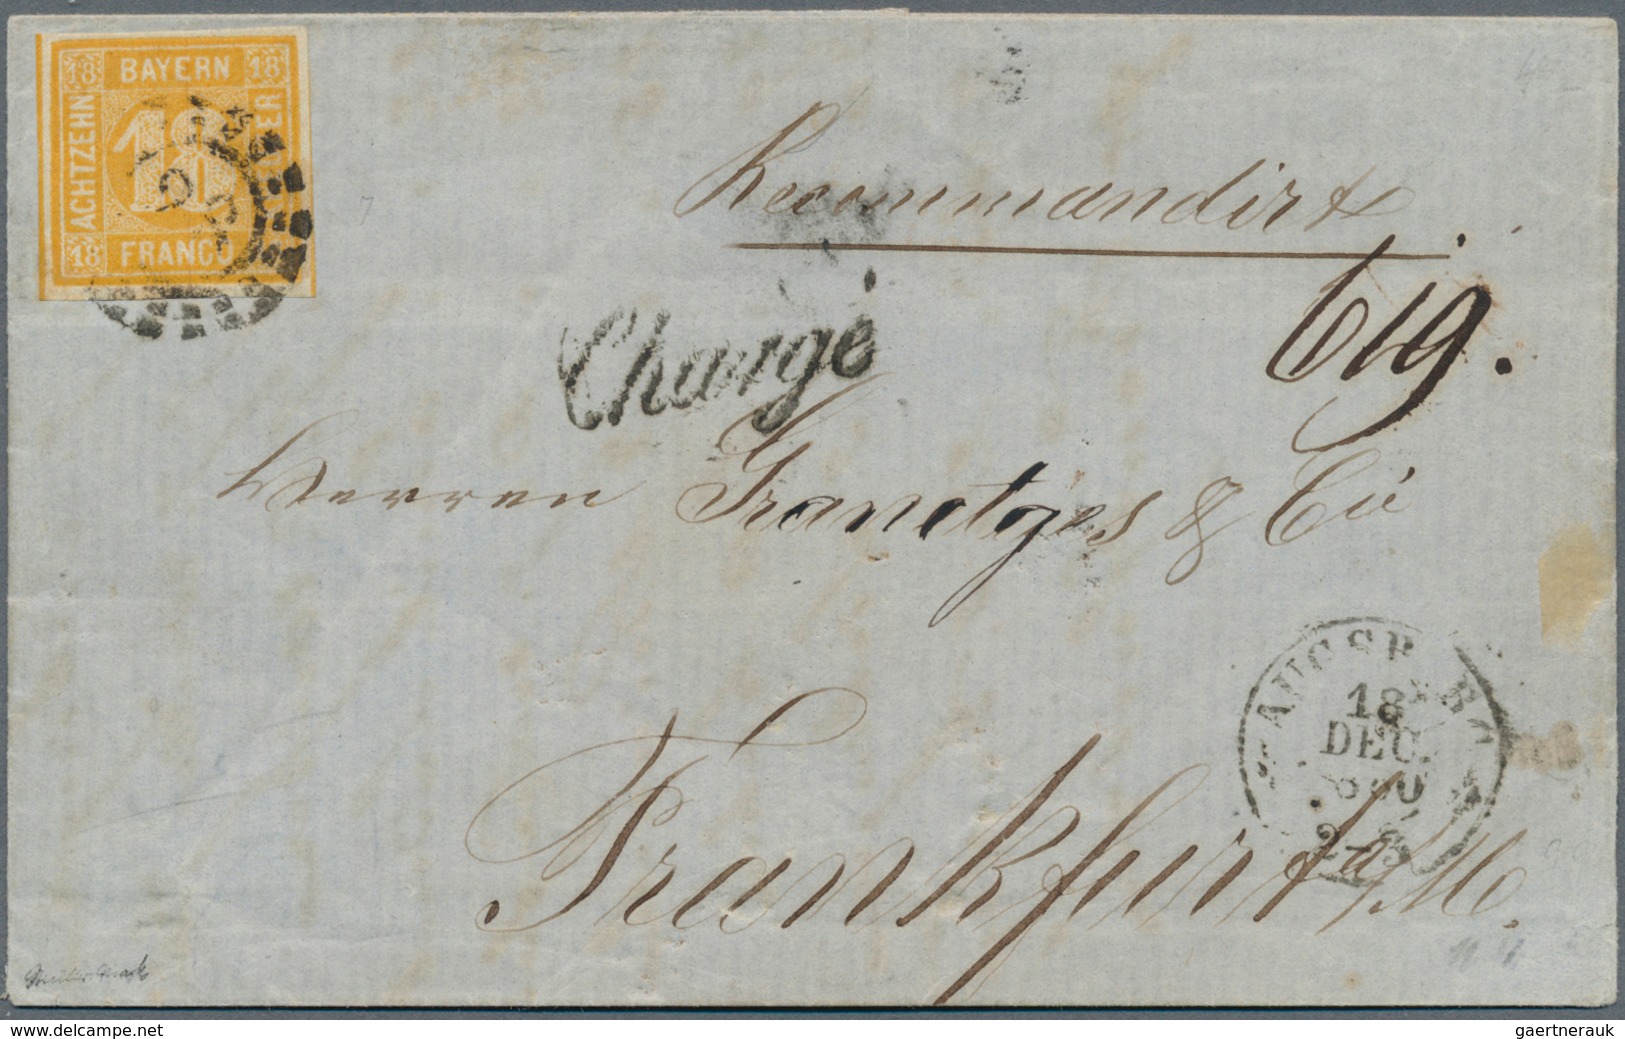 18 BAYERN 18
ACHTZEHN
18
FRANCO
18
Recommandirt
Chargé
619.
Herren Franetges & Cie
AUGSBURG
18
DEC.
2-3
Frankfurt a/M.
www.delcampe.net
gaertnerauk